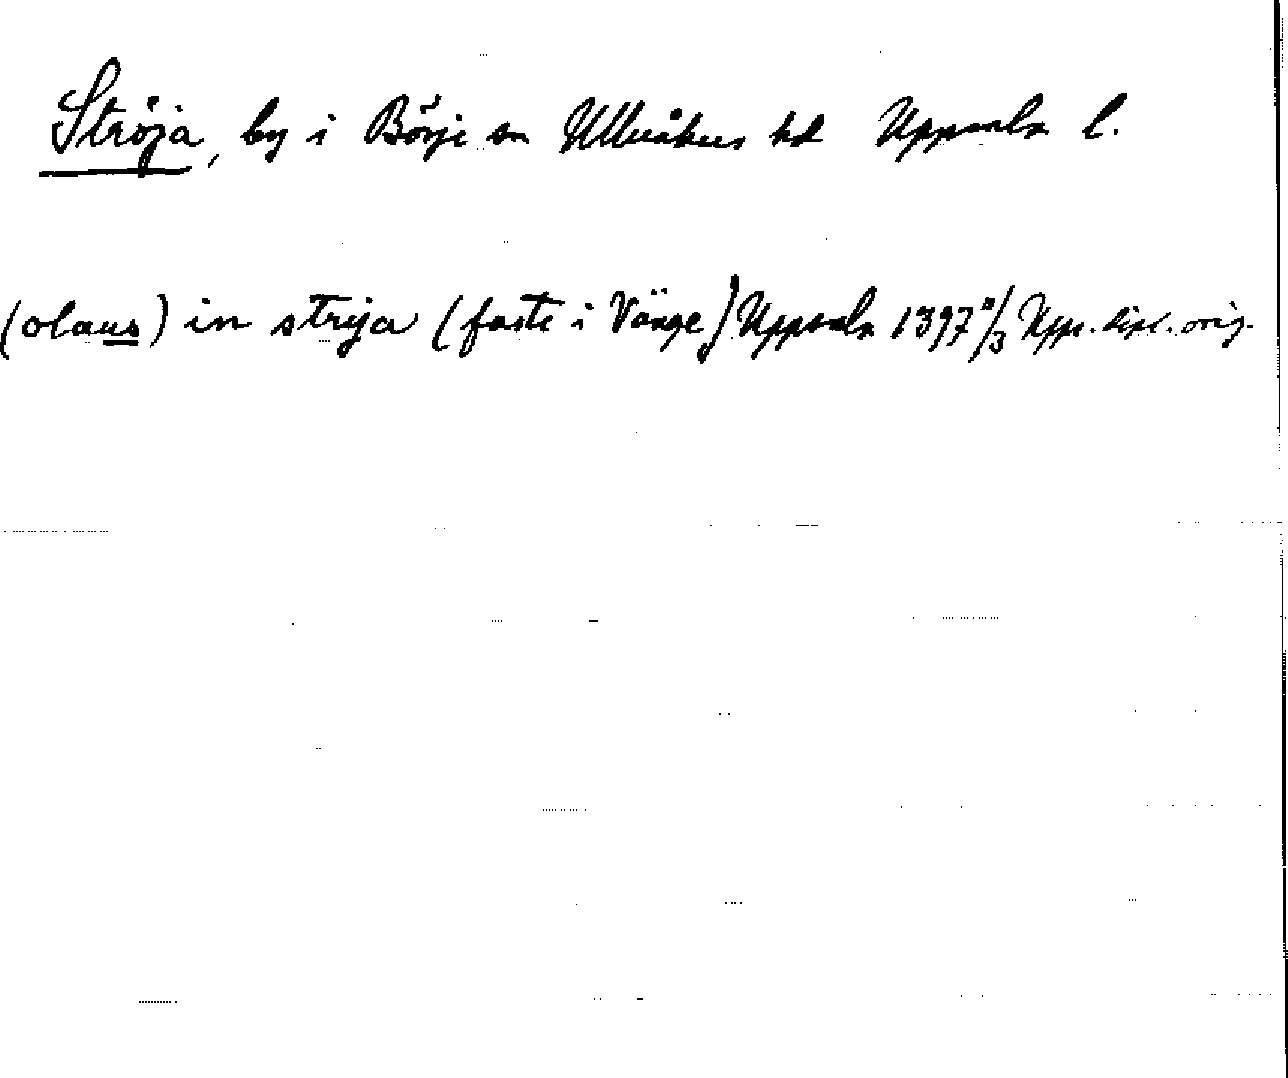 Ströja, by i Börje sn Ulleråkers hd Uppsala l.
(olaus) in strija (faste i Vänge) Uppsala 1397 /3 Upps. dipl. orig.